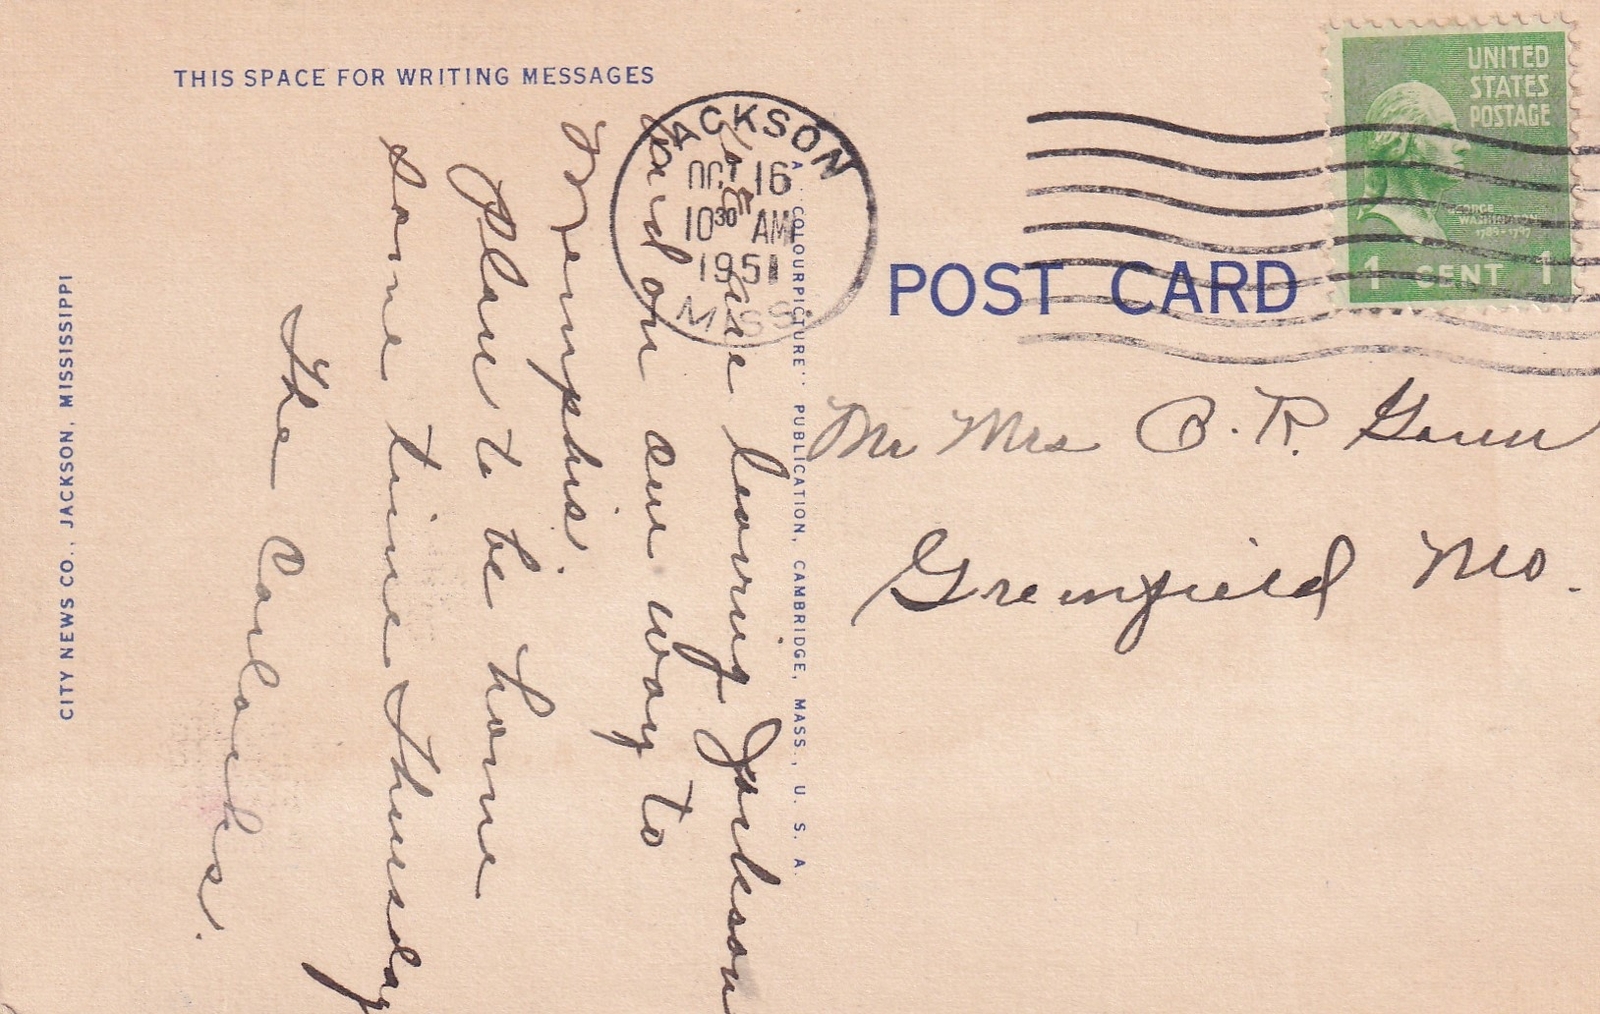 THIS SPACE FOR WRITING MESSAGES
CITY NEWS CO., JACKSON, MISSISSIPPI
A "COLOURPICTURE" PUBLICATION, CAMBRIDGE, MASS., U. S. A.
JACKSON
OCT 16
10 30 AM
1951
MISS.
UNITED
STATES
POSTAGE
GEORGE
WASHINGTON
1789-1797
1 CENT 1
POST CARD
We are leaving Jackson
and on our way to
Memphis.
Plan to be home
some time Thursday
The Carlocks.
Mr Mrs R.
Greenfield Mo.